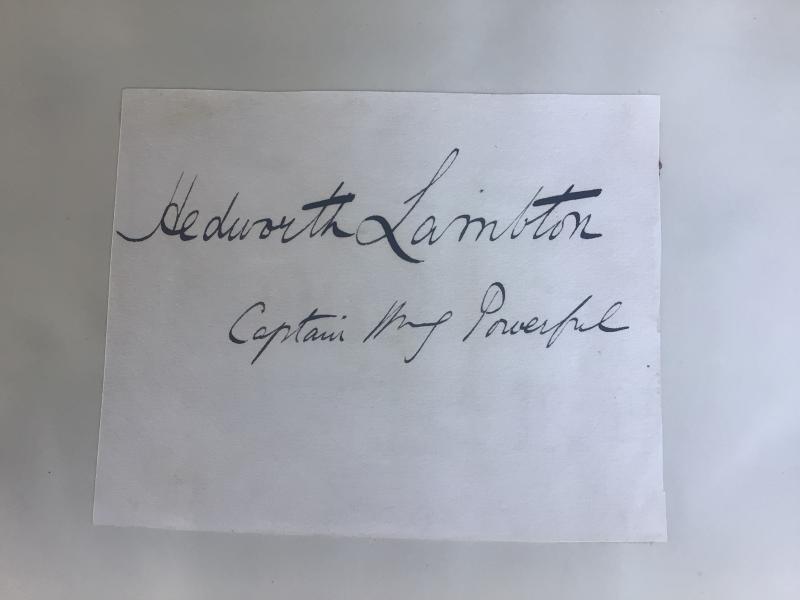 Hedworth Lambton
Captain HMS Powerful